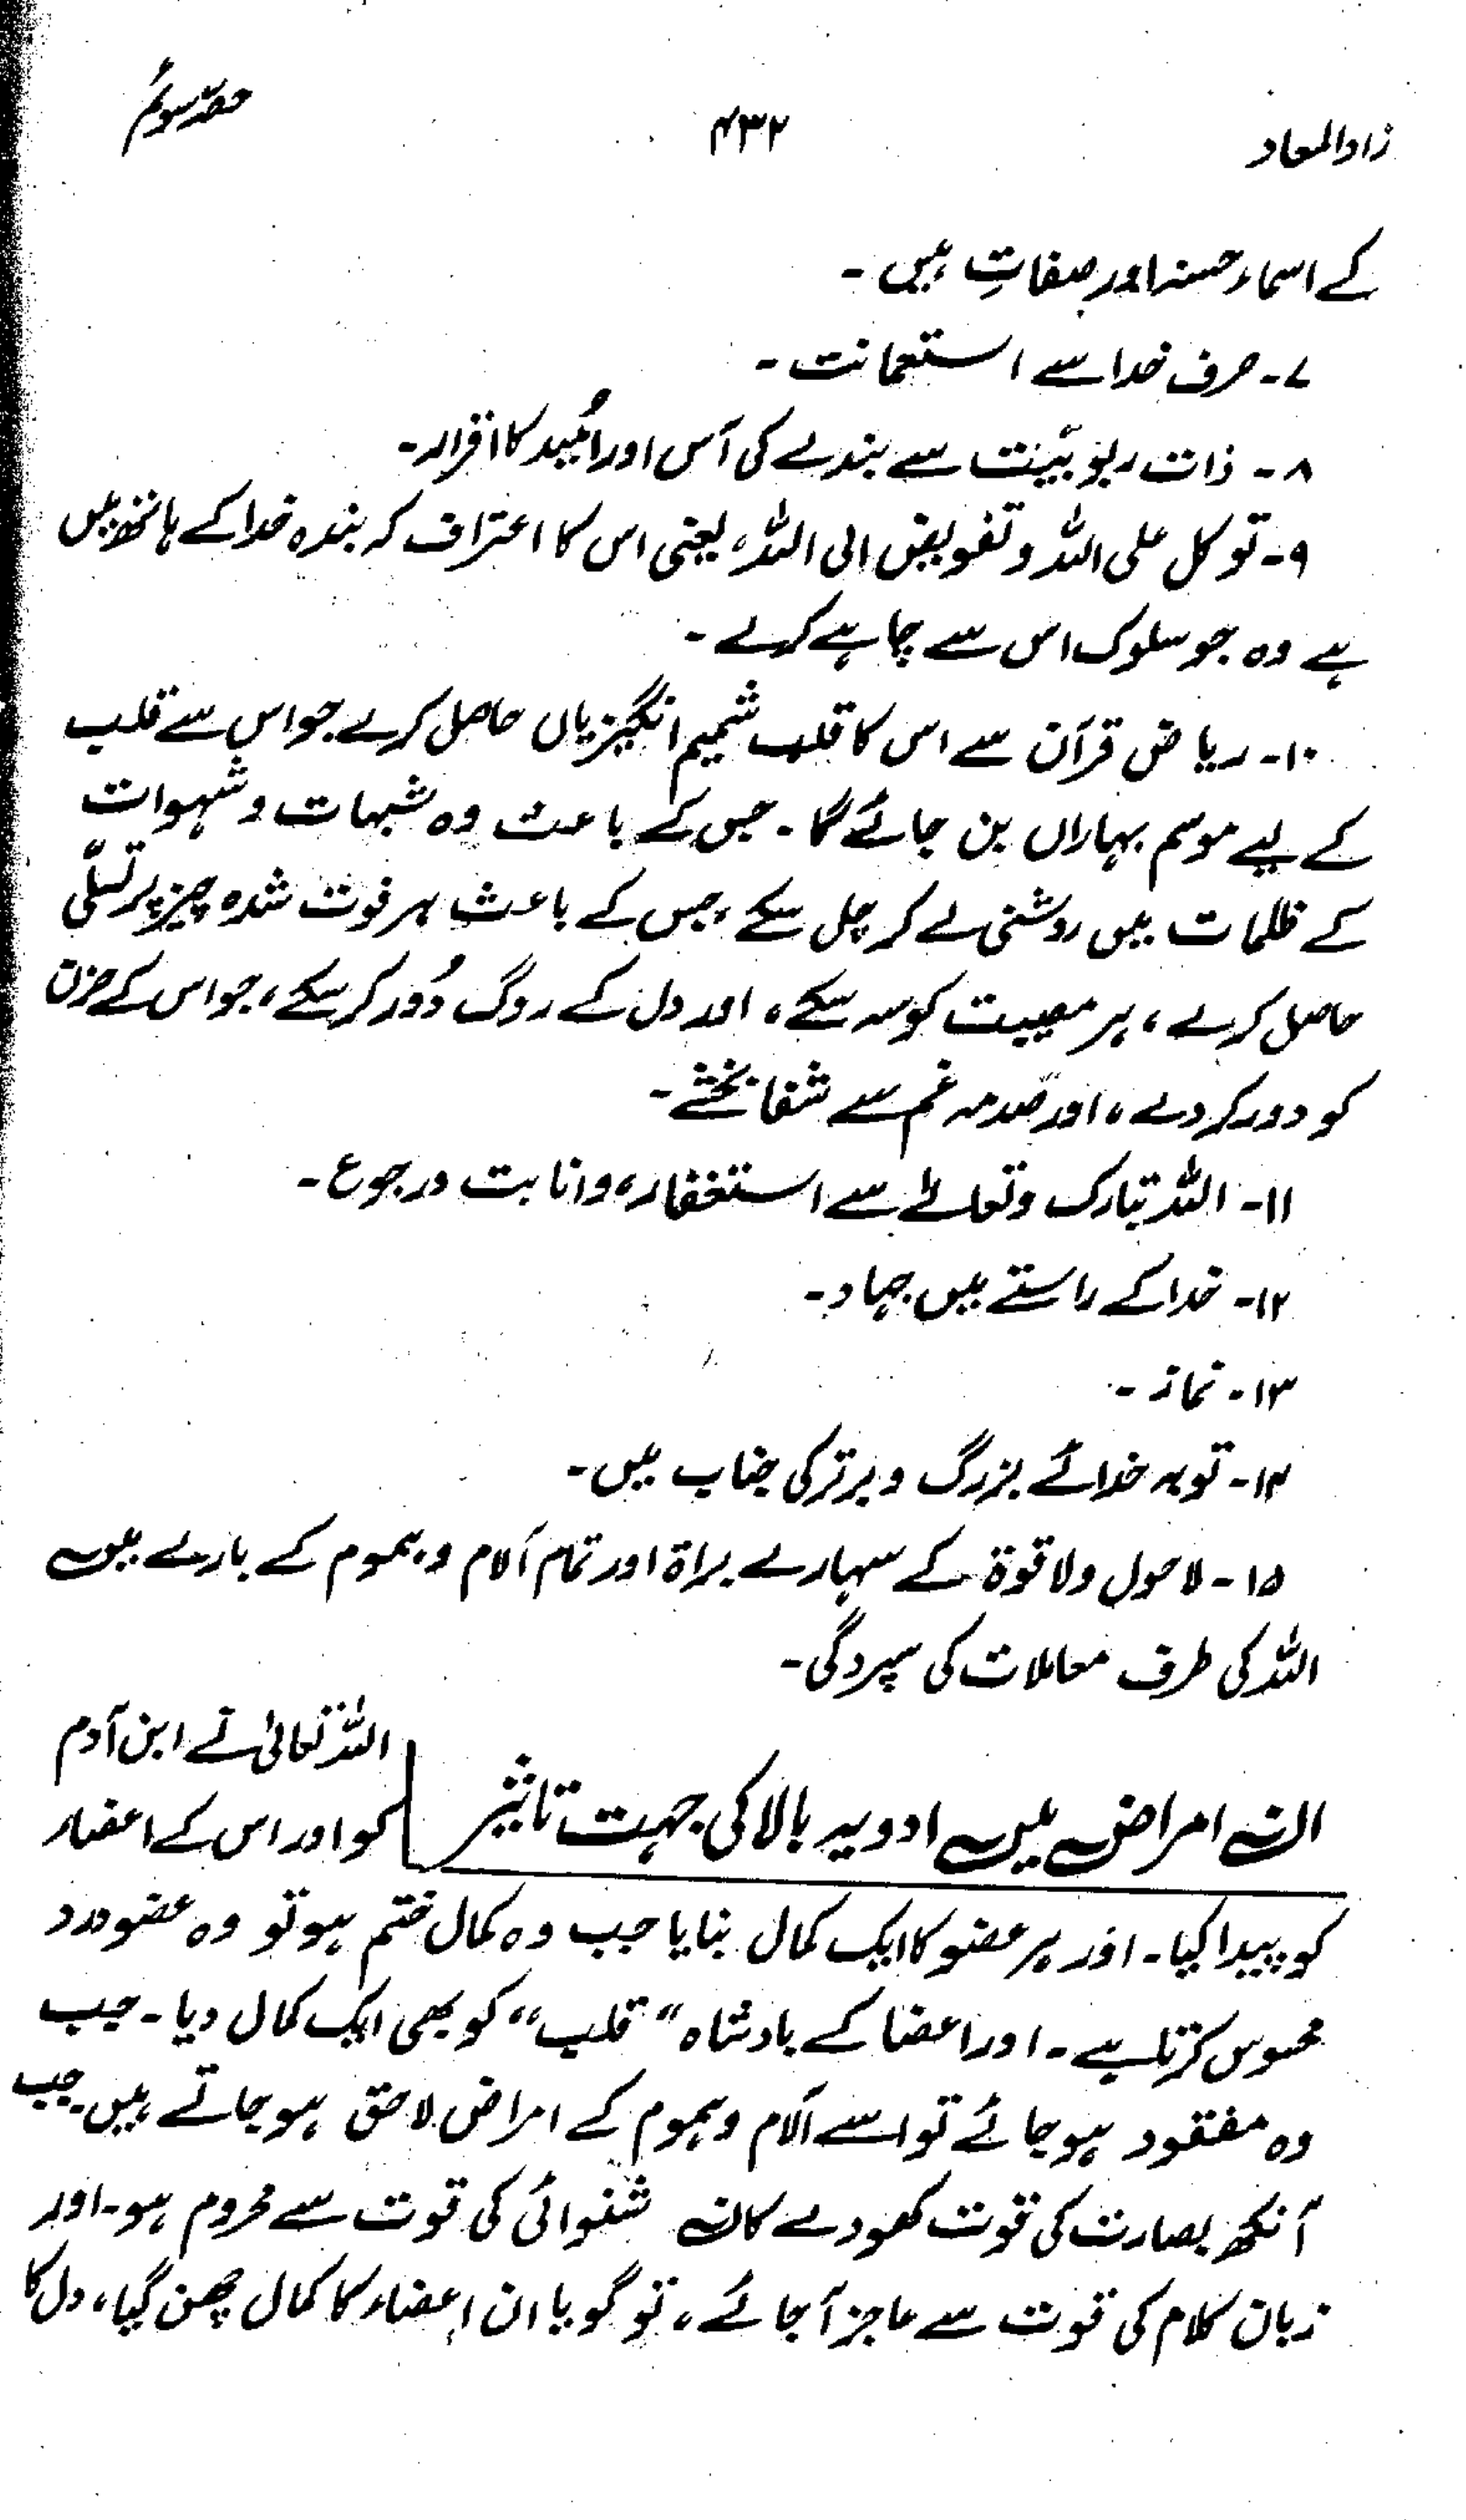 زادالمعاد ۴۳۲ حصہ سوئم
کے اسماء حسنہ اور صفاتِ ہیں ۔
۷۔ صرف خدا سے استعانت ۔
۸۔ ذات ربوبیّت سے بندے کی آس اور اُمید کا اقرار۔
۹۔ توکل علی اللہ و تفویض الی اللہ، یعنی اس کا اعتراف کہ بندہ خدا کے ہاتھ میں
ہے وہ جو سلوک اس سے چاہے کرے ۔
۱۰۔ ریاض قرآن سے اس کا قلب شمیم انگیزیاں حاصل کرے جو اس سے قلب
کے لیے موسم بہاراں بن جائے گا۔ جس کے باعث وہ شبہات و شہوات
کے ظلمات میں روشنی لے کر چل سکے، جس کے باعث ہر فوت شدہ چیز پر تسلّی
حاصل کرے، ہر مصیبت کو سہ سکے، اور دل کے روگ دُور کر سکے، جو اس کے حزن
کو دور کر دے، اور صدمہ غم سے شفا بخشے ۔
۱۱۔ اللہ تبارک وتعالےٰ سے استغفار، وانابت ورجوع ۔
۱۲۔ خدا کے راستے میں جہاد۔
۱۳۔ نماز ۔
۱۴۔ توبہ خدائے بزرگ و برتر کی جناب میں۔
۱۵۔ لاحول ولا قوۃ کے سہارے براۃ اور تمام آلام و ہموم کے بارے میں
اللہ کی طرف معاملات کی سپردگی ۔
ان امراض میں ادویہ بالا کی جہت تاثیر
اللہ تعالیٰ نے ابن آدم
کو اور اس کے اعضاء
کو پیدا کیا۔ اور ہر عضو کا ایک کمال بنایا جب وہ کمال ختم ہو تو وہ عضو درد
محسوس کرتا ہے ۔ اور اعضا کے بادشاہ "قلب" کو بھی ایک کمال دیا۔ جب
وہ مفقود ہو جائے تو اسے آلام و ہموم کے امراض لاحق ہو جاتے ہیں جب
آنکھ بصارت کی قوت کھو دے کان شنوائی کی قوت سے محروم ہو۔ اور
زبان کلام کی قوت سے عاجز آ جائے، تو گویا ان اعضاء کا کمال چھن گیا، دل کا